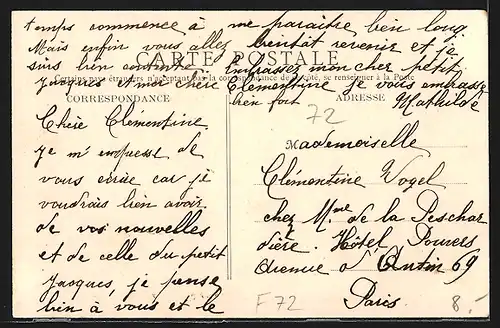 temps commence à me paraître bien long
Mais enfin vous allez bientôt revenir et je
suis bien contente. Embrassez mon cher petit
Jacques et moi chère Clémentine je vous embrasse
bien fort Mathilde
CARTE POSTALE
Certains pays étrangers n'acceptant pas la correspondance de ce côté, se renseigner à la Poste
CORRESPONDANCE
ADRESSE
72
Chère Clémentine,
je m'empresse de
vous écrire car je
voudrais bien avoir
de vos nouvelles
et de celle du petit
Jacques, je pense
bien à vous et le
Mademoiselle
Clémentine Vogel
chez Mme de la Peschar
dière. Hôtel Powers
Avenue d'Antin 69
Paris.
F72
8.-